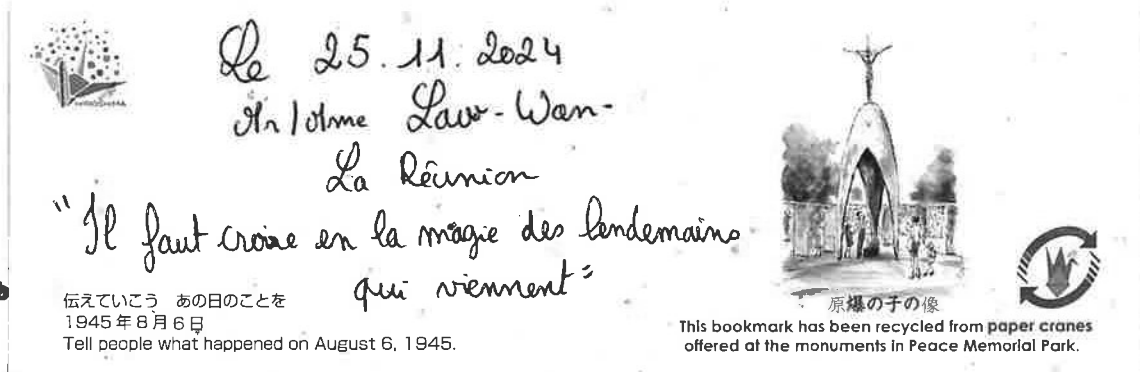 Le 25.11.2024
Mr/Mme Law-Wan-
La Réunion
"Il faut croire en la magie des lendemains
qui viennent"
伝えていこう あの日のことを
1945年8月6日
Tell people what happened on August 6, 1945.
原爆の子の像
This bookmark has been recycled from paper cranes
offered at the monuments in Peace Memorial Park.